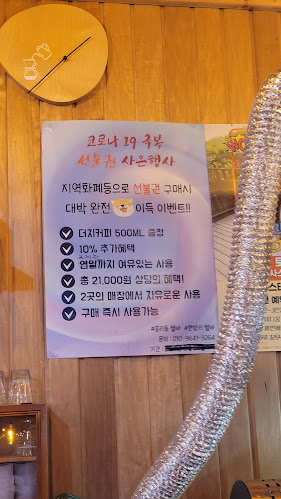 코로나 19 극복
선불권 사은행사
지역화폐등으로 선불권 구매시
대박 완전 이득 이벤트!!
더치커피 500ML 증정
10% 추가혜택
연말까지 여유있는 사용
총 21,000원 상당의 혜택!
2곳의 매장에서 자유로운 사용
구매 즉시 사용가능
문의 : 010-9641-3264
기간 :